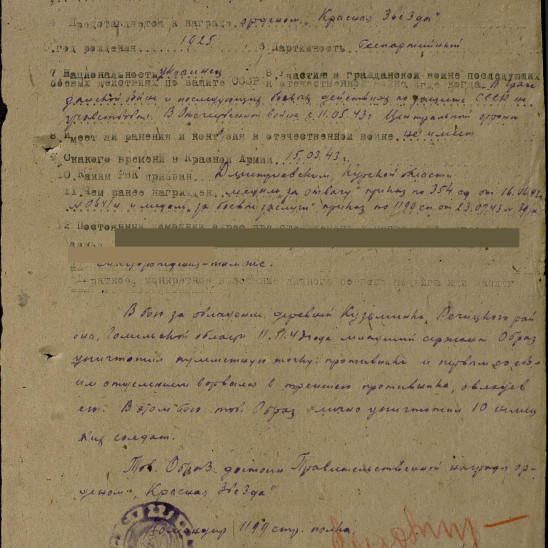 4 Представляется к награде орденом „Красная Звезда"
5 год рождения 1925 6 Партийность беспартийный
7 Национальность украинец 8 Участие в гражданской войне последующих
боевых действиях по защите СССР и отечественной войне где когда В граж-
данской войне и последующих боевых действиях по защите СССР не
участвовал. В Отечественной войне с 11.05.43г Центральный фронт
8 Имеет ли ранения и контузия в отечественной войне не имеет
9 С какого времени в Красной Армии 15.03.43г.
10 Каким РВК призван Дмитриевским, Курской области
11 Чем ранее награжден медаль „за отвагу" приказ по 354 сд от
и медаль „за боевые заслуги" приказ по 1199 сп от 23.07.43
12 Постоянный
краткое, конкретное изложение личного боевого подвига или заслуг
В бою за овладение деревней Кузьминка, Речицкого рай
она, Гомельской области 11.11.43 года младший сержант Образ
уничтожил пулеметную точку противника и первым со сво-
им отделением ворвался в траншею противника, овладев
ею. В этом бою тов. Образ лично уничтожил 10 немец
ких солдат.
Тов. Образ достоин Правительственной награды ор-
деном „Красная Звезда"
Командир 1199 стр. полка.